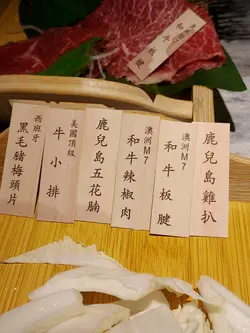 西班牙
黑毛豬梅頭片
美國頂級
牛小排
鹿兒島五花腩
澳洲M7
和牛辣椒肉
澳洲M7
和牛板腱
鹿兒島雞扒